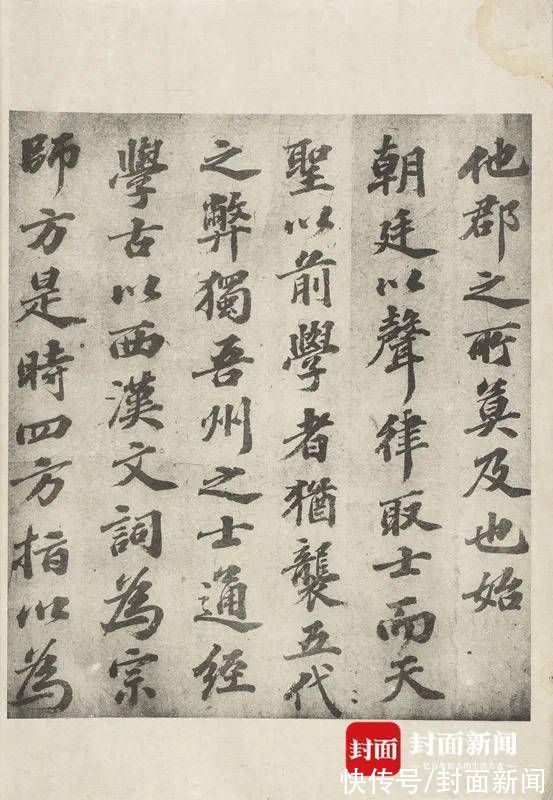 他郡之所莫及也始
朝廷以聲律取士而天
聖以前學者猶襲五代
之弊獨吾州之士通經
學古以西漢文詞為宗
師方是時四方指以為
封面
封面新闻
亿万年轻人的生活方式
快传号/封面新闻